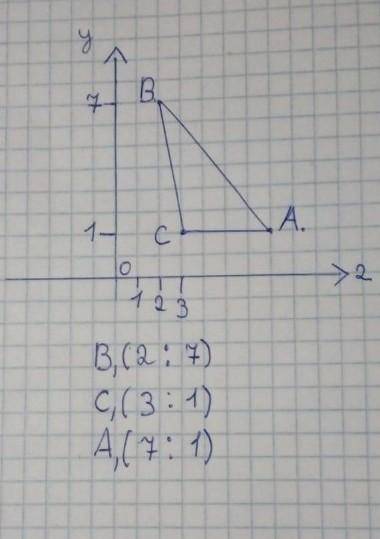 y
7
B
1
C
A.
0
1 2 3
2
B,(2 : 7)
C,(3 : 1)
A,(7 : 1)